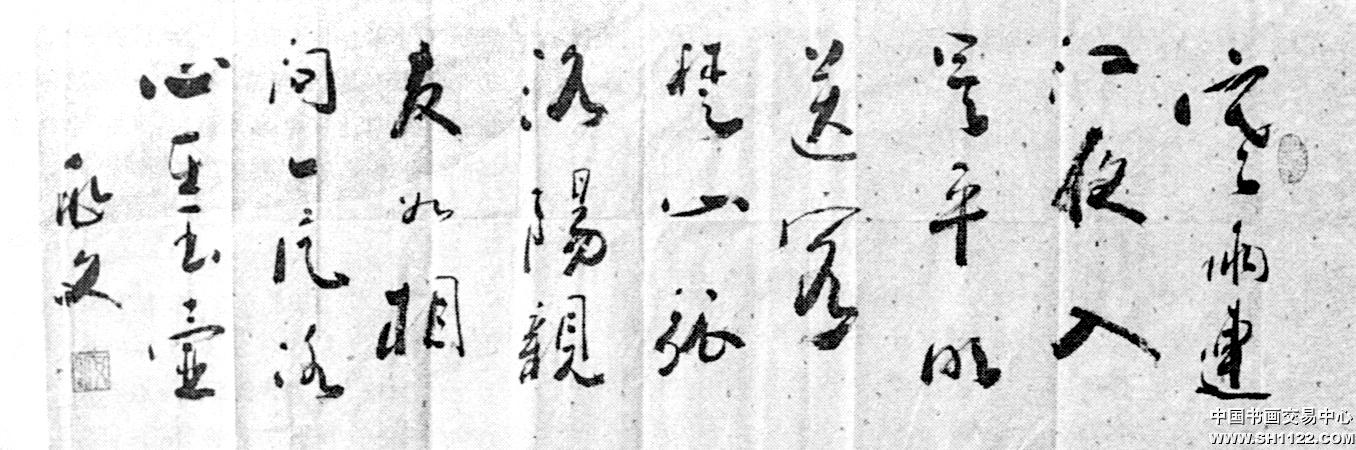 寒雨連
江夜入
吴平明
送客
楚山孤
洛陽親
友如相
问一片冰
心在玉壺
中国书画交易中心
WWW.SH1122.COM